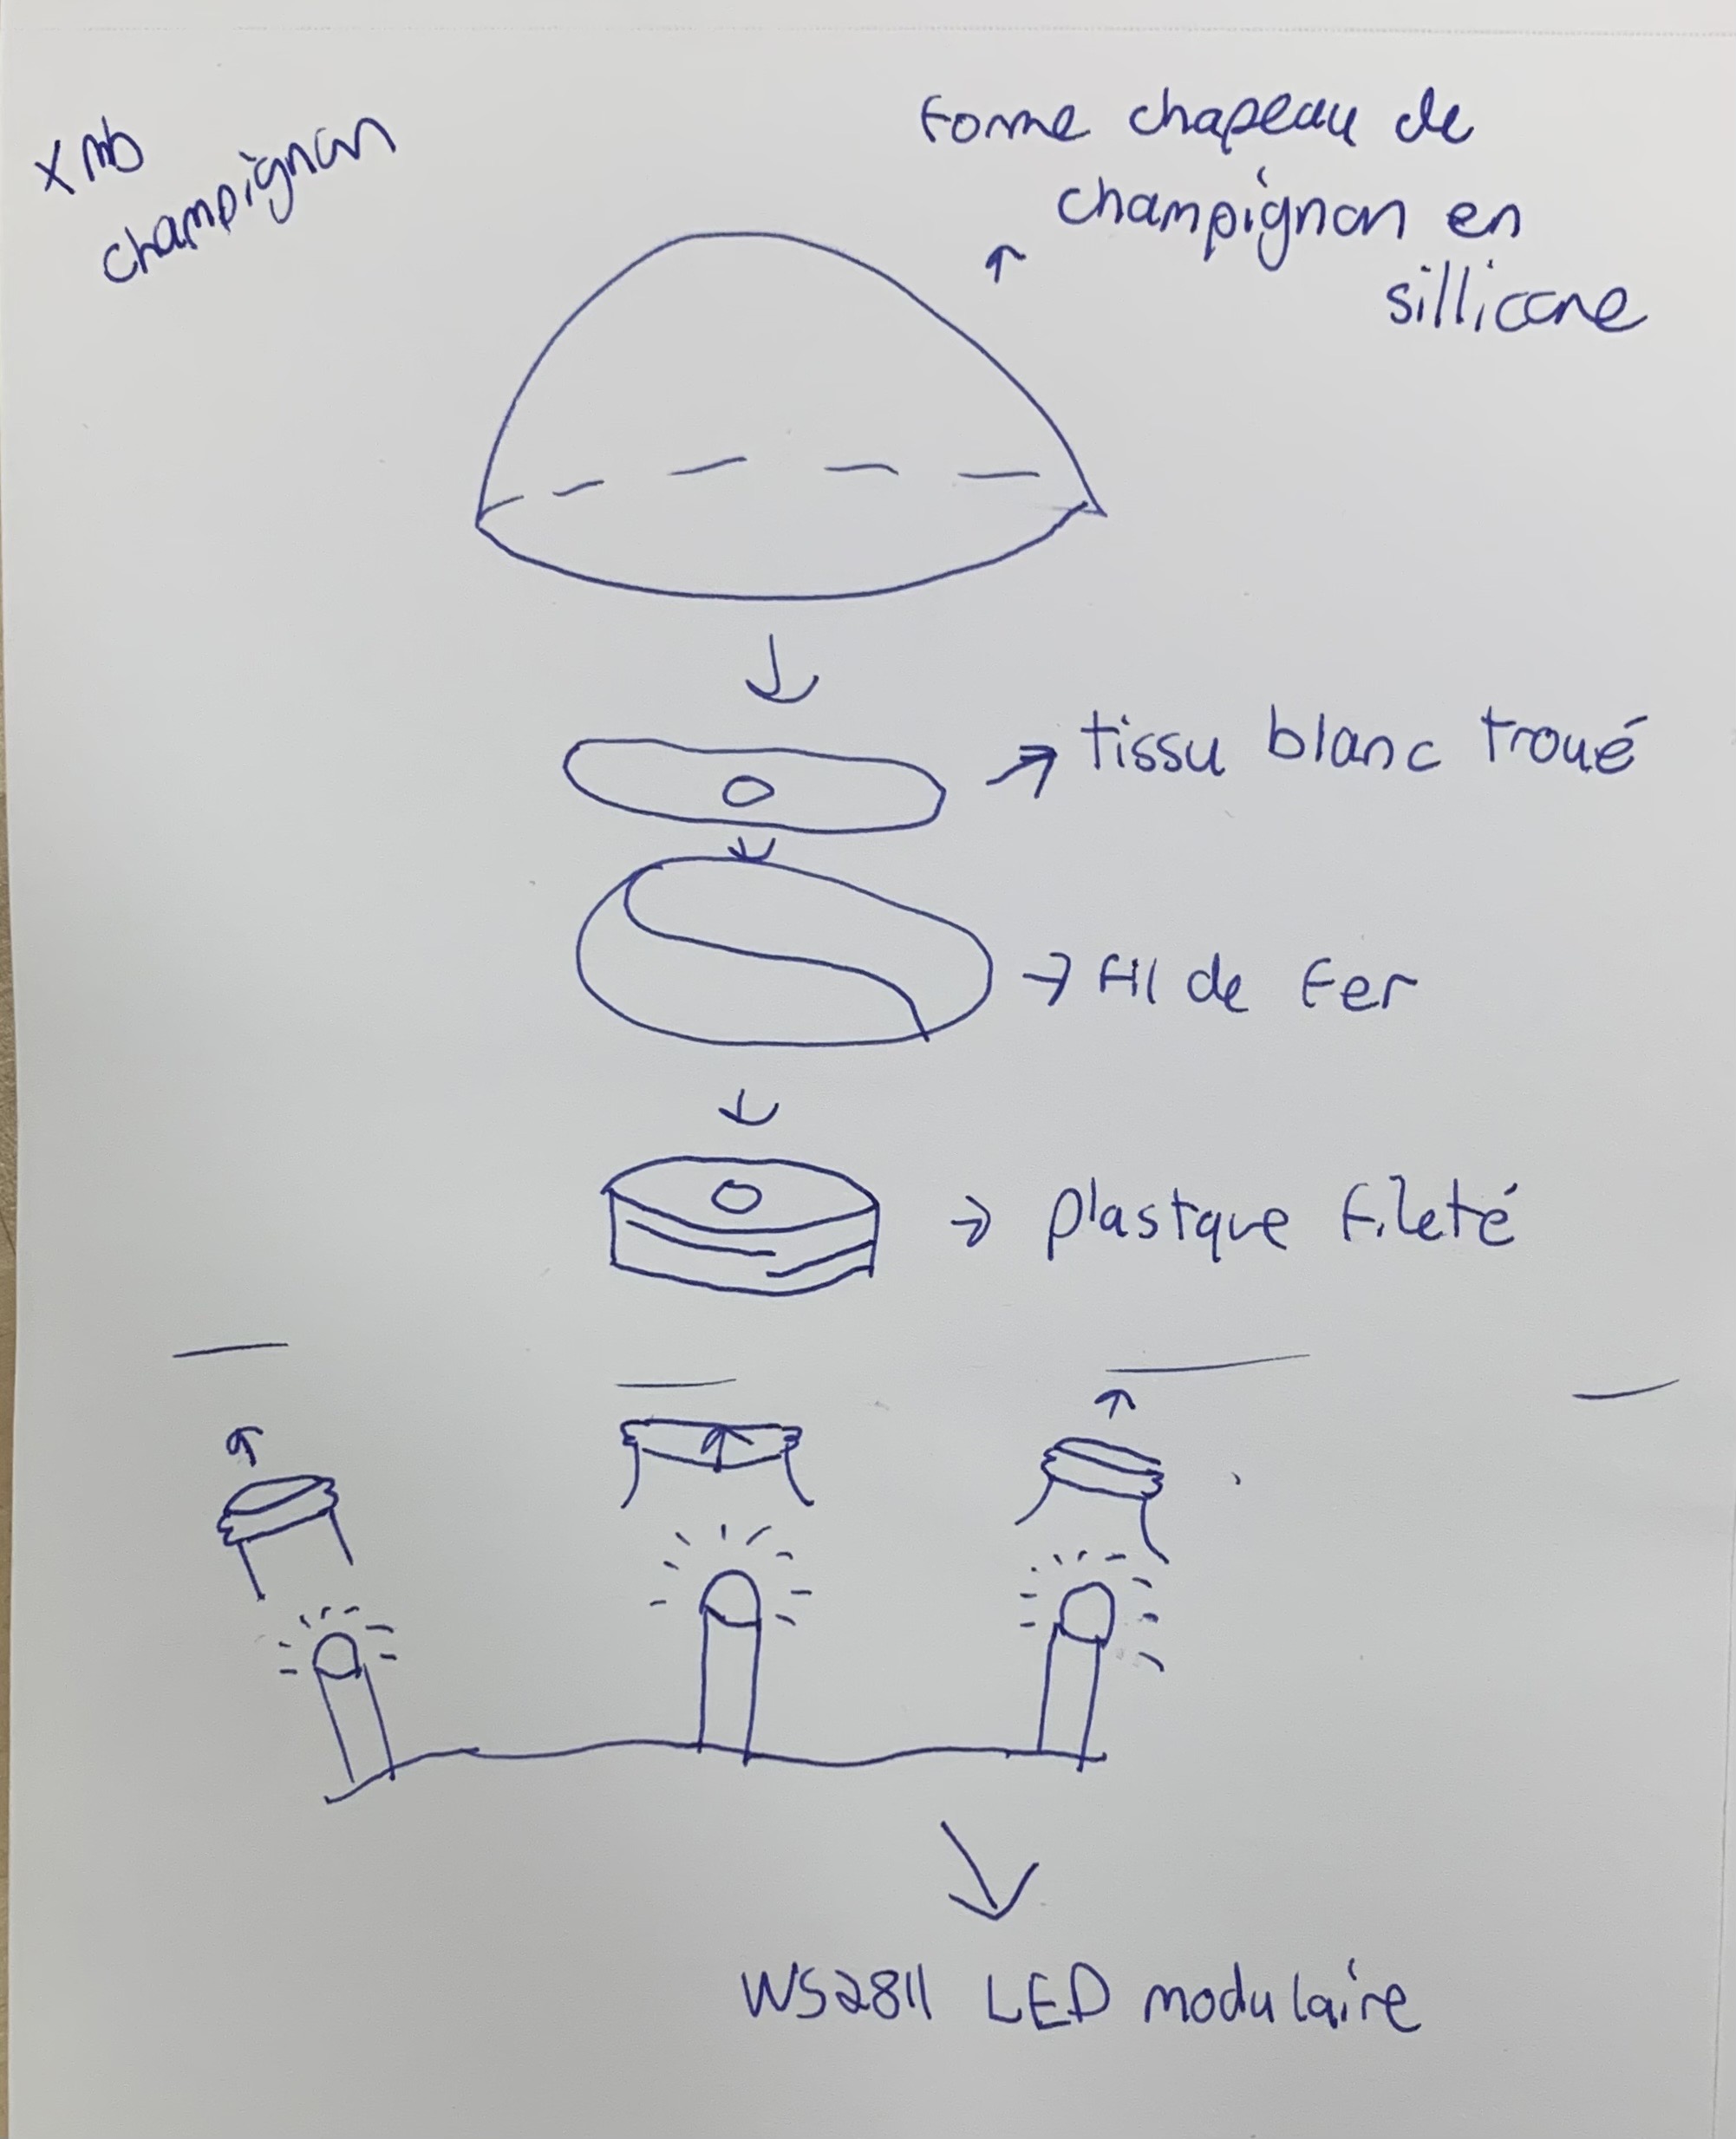 x nb
champignon
forme chapeau de
champignon en
sillicone
tissu blanc troué
fil de fer
plastque fileté
WS2811 LED modulaire